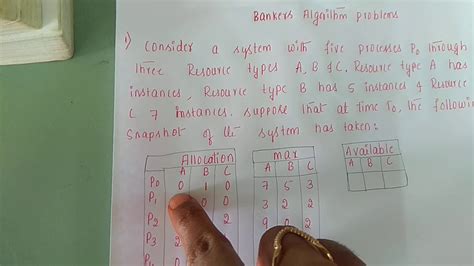 Bankers Algorithm problems
1) Consider a system with five processes P0 through
three Resource types A, B & C. Resource type A has
instances, Resource type B has 5 instances & Resource
C 7 instances. suppose that at time T0, the following
Snapshot of the system has taken:
Allocation max Available
A B C A B C A B C
P0 0 1 0 7 5 3
P1 0 0 3 2 2
P2 2 9 0 2
P3 2